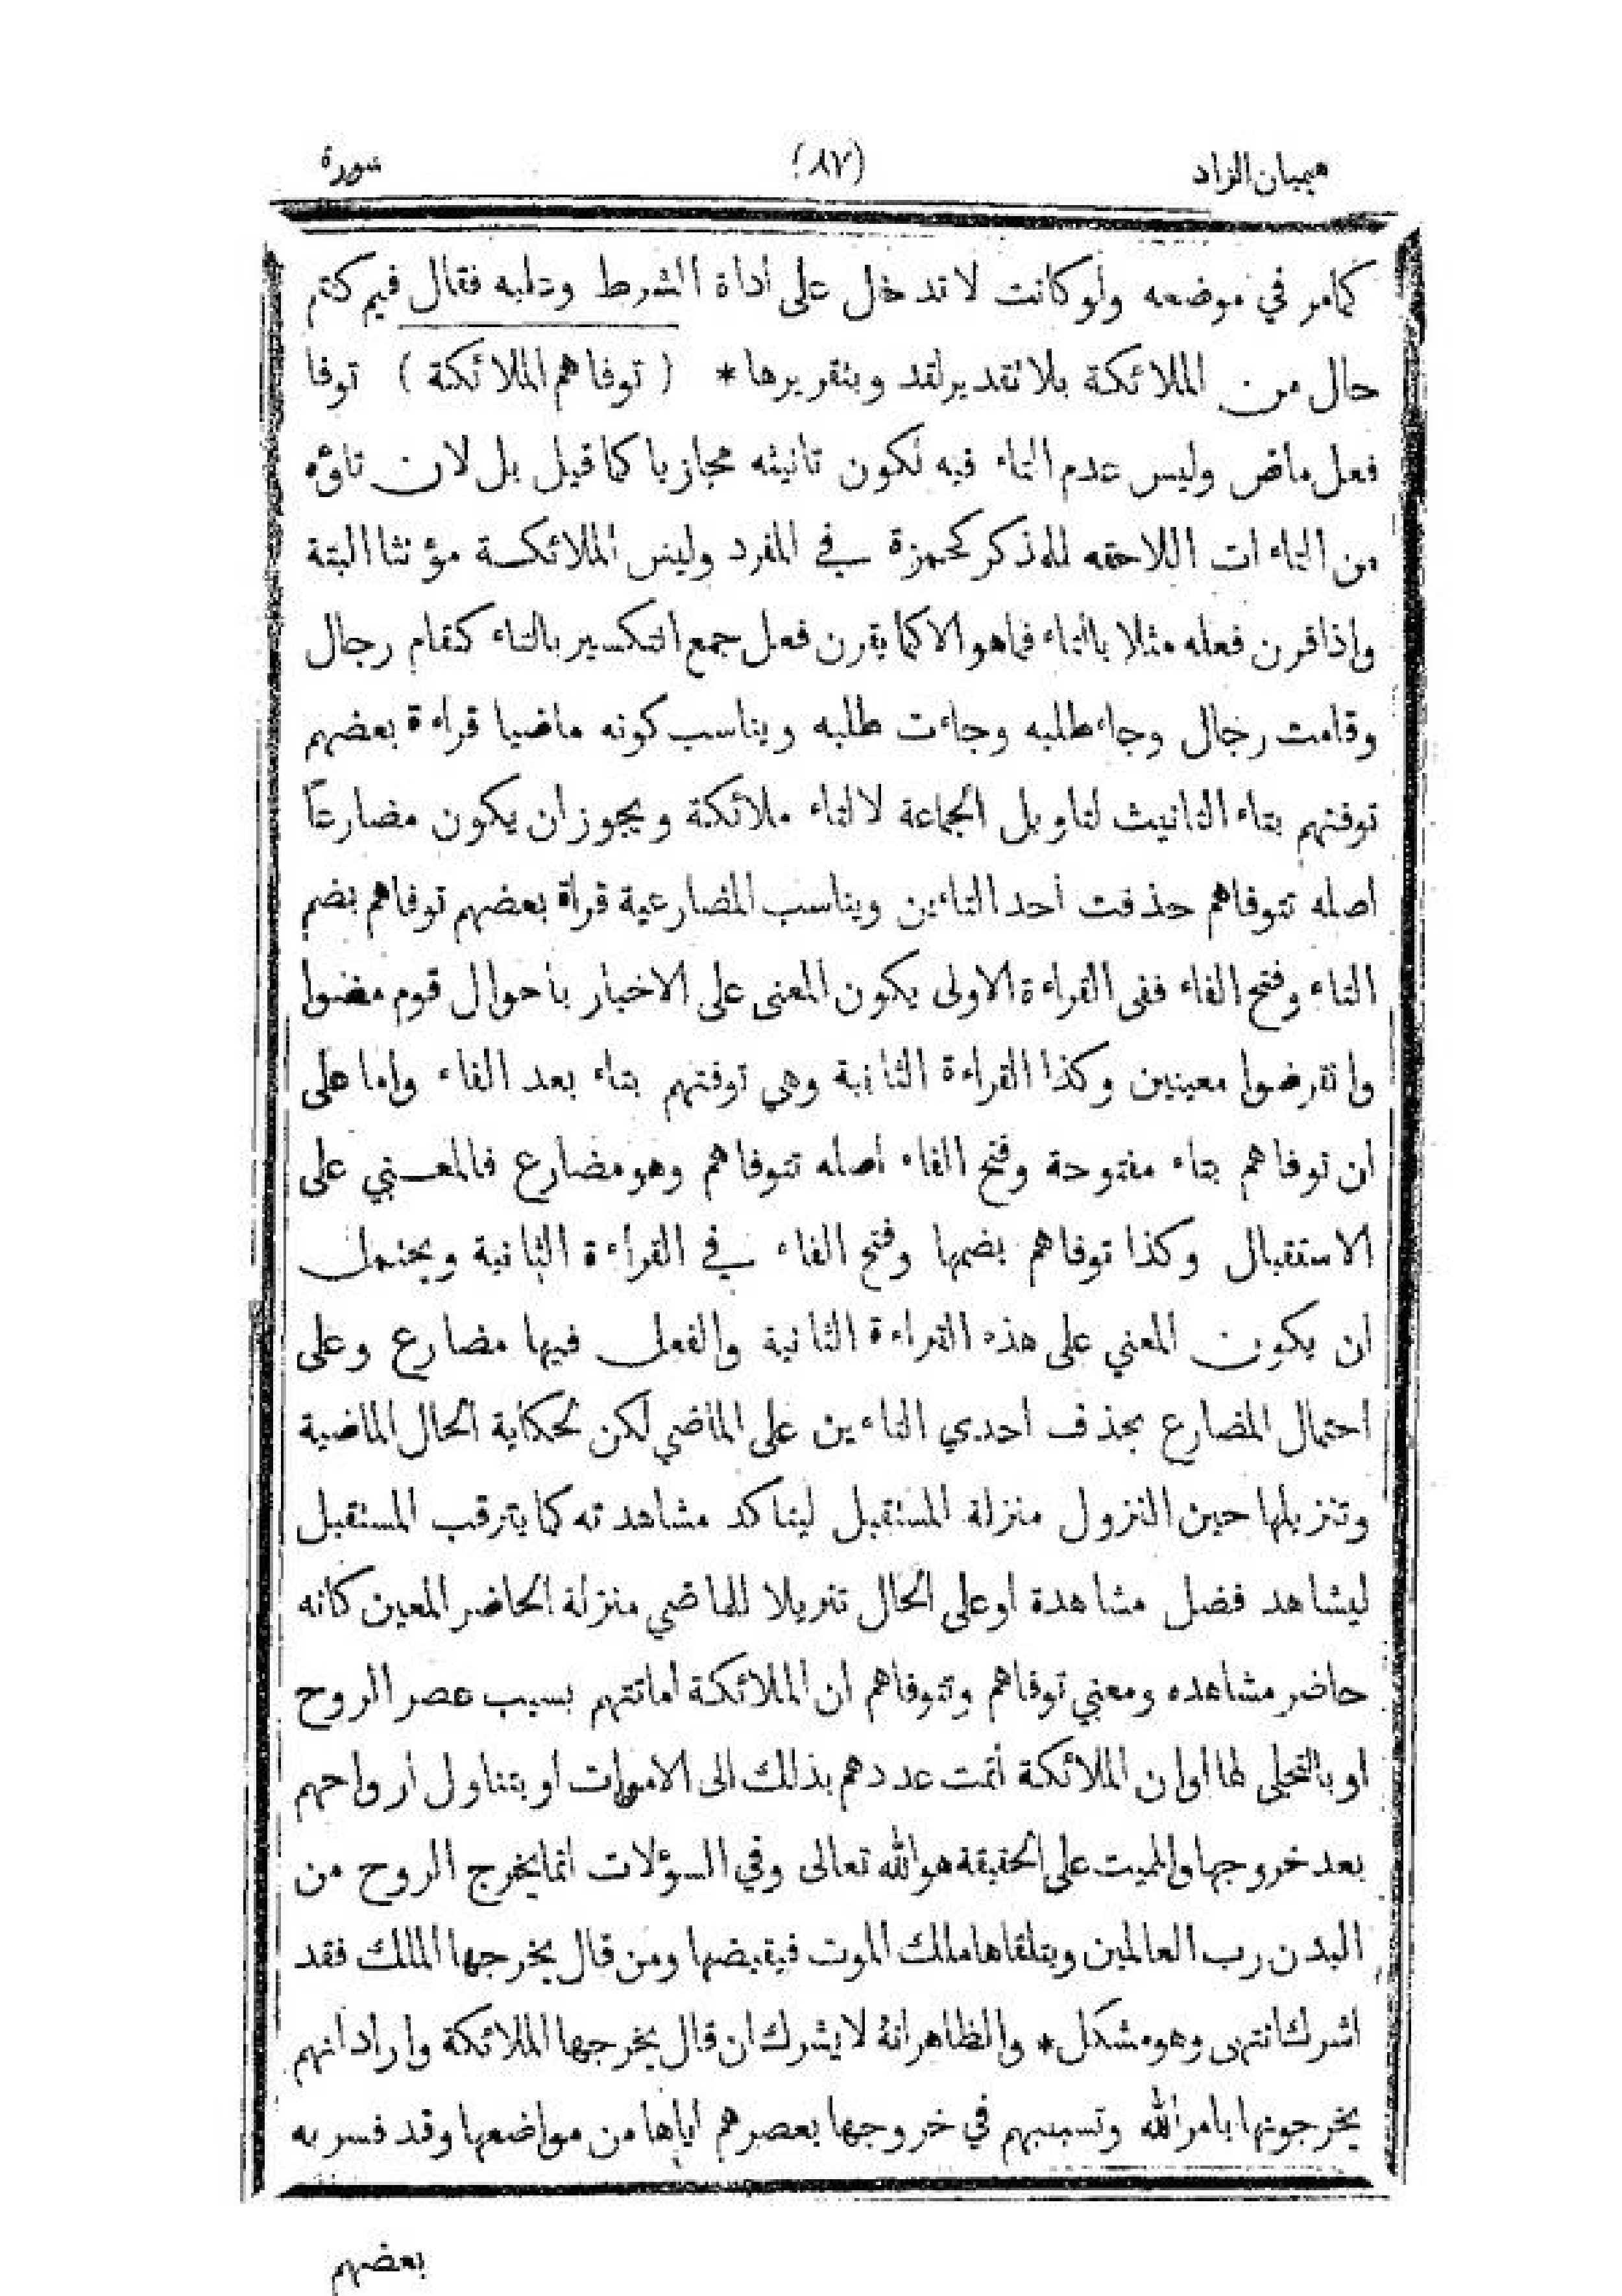 هيميان الزاد (٨٧) سورة
كمامر في موضعه ولو كانت لا تدخل على أداة الشرط وعليه فقال فيم كنتم
حال من الملائكة بلا تقدير لقد وبتقريرها * ( توفاهم الملائكة ) توفا
فعل ماض وليس عدم التاء فيه لكون تانيثه مجازيا كما قيل بل لان تاؤه
من التاءات اللاحقه للمذكر كحمزة في المفرد وليس الملائكة مؤنثا البتة
واذا قرن فعله مثلا بالتاء فما هو الا كما يقرن فعل جمع التكسير بالتاء كقام رجال
وقامت رجال وجاء طلبه وجاءت طلبه ويناسب كونه ماضيا قراءة بعضهم
توفتهم بتاء التانيث لتاويل الجماعة لا لتاء ملائكة ويجوز ان يكون مضارعاً
أصله تتوفاهم حذفت أحد التاءين ويناسب المضارعية قرأة بعضهم توفاهم بضم
التاء وفتح الفاء ففى القراءة الاولى يكون المعنى على الاخبار بأحوال قوم مضوا
وانقرضوا معينين وكذا القراءة الثانية وهي توفتهم بتاء بعد الفاء واما على
ان توفاهم بتاء مفتوحة وفتح الفاء أصله تتوفاهم وهو مضارع فالمعني على
الاستقبال وكذا توفاهم بضمها وفتح الفاء في القراءة الثانية ويحتمل
ان يكون المعني على هذه القراءة الثانية والفعل فيها مضارع وعلى
احتمال المضارع بحذف احدي التاءين على الماضي لكن لحكاية الحال الماضية
وتنزيلها حين النزول منزلة المستقبل ليتاكد مشاهدته كما يترقب المستقبل
ليشاهد فضل مشاهدة او على الحال تنزيلا للماضي منزلة الحاضر المعين كانه
حاضر مشاهده ومعني توفاهم وتتوفاهم ان الملائكة اماتتهم بسبب عصر الروح
او بالتجلى لها اوان الملائكة أتمت عددهم بذلك الى الاموات او بتناول ارواحهم
بعد خروجها والمميت على الحقيقة هو الله تعالى وفي السؤلات انما يخرج الروح من
البدن رب العالمين ويتلقاها ملك الموت فيقبضها ومن قال يخرجها الملك فقد
اشرك انتهى وهو مشكل * والظاهر انه لا يشرك ان قال يخرجها الملائكة واراد انهم
يخرجونها بامر الله وتسببهم في خروجها بعصرهم اياها من مواضعها وقد فسر به
بعضهم